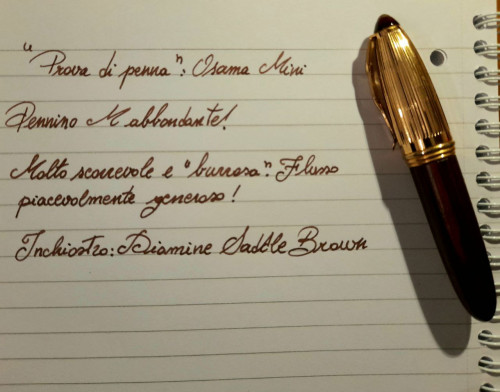 "Prova di penna": Osama Mini
Pennino M abbondante!
Molto scorrevole e "burrosa". Flusso
piacevolmente generoso!
Inchiostro: Diamine Saddle Brown